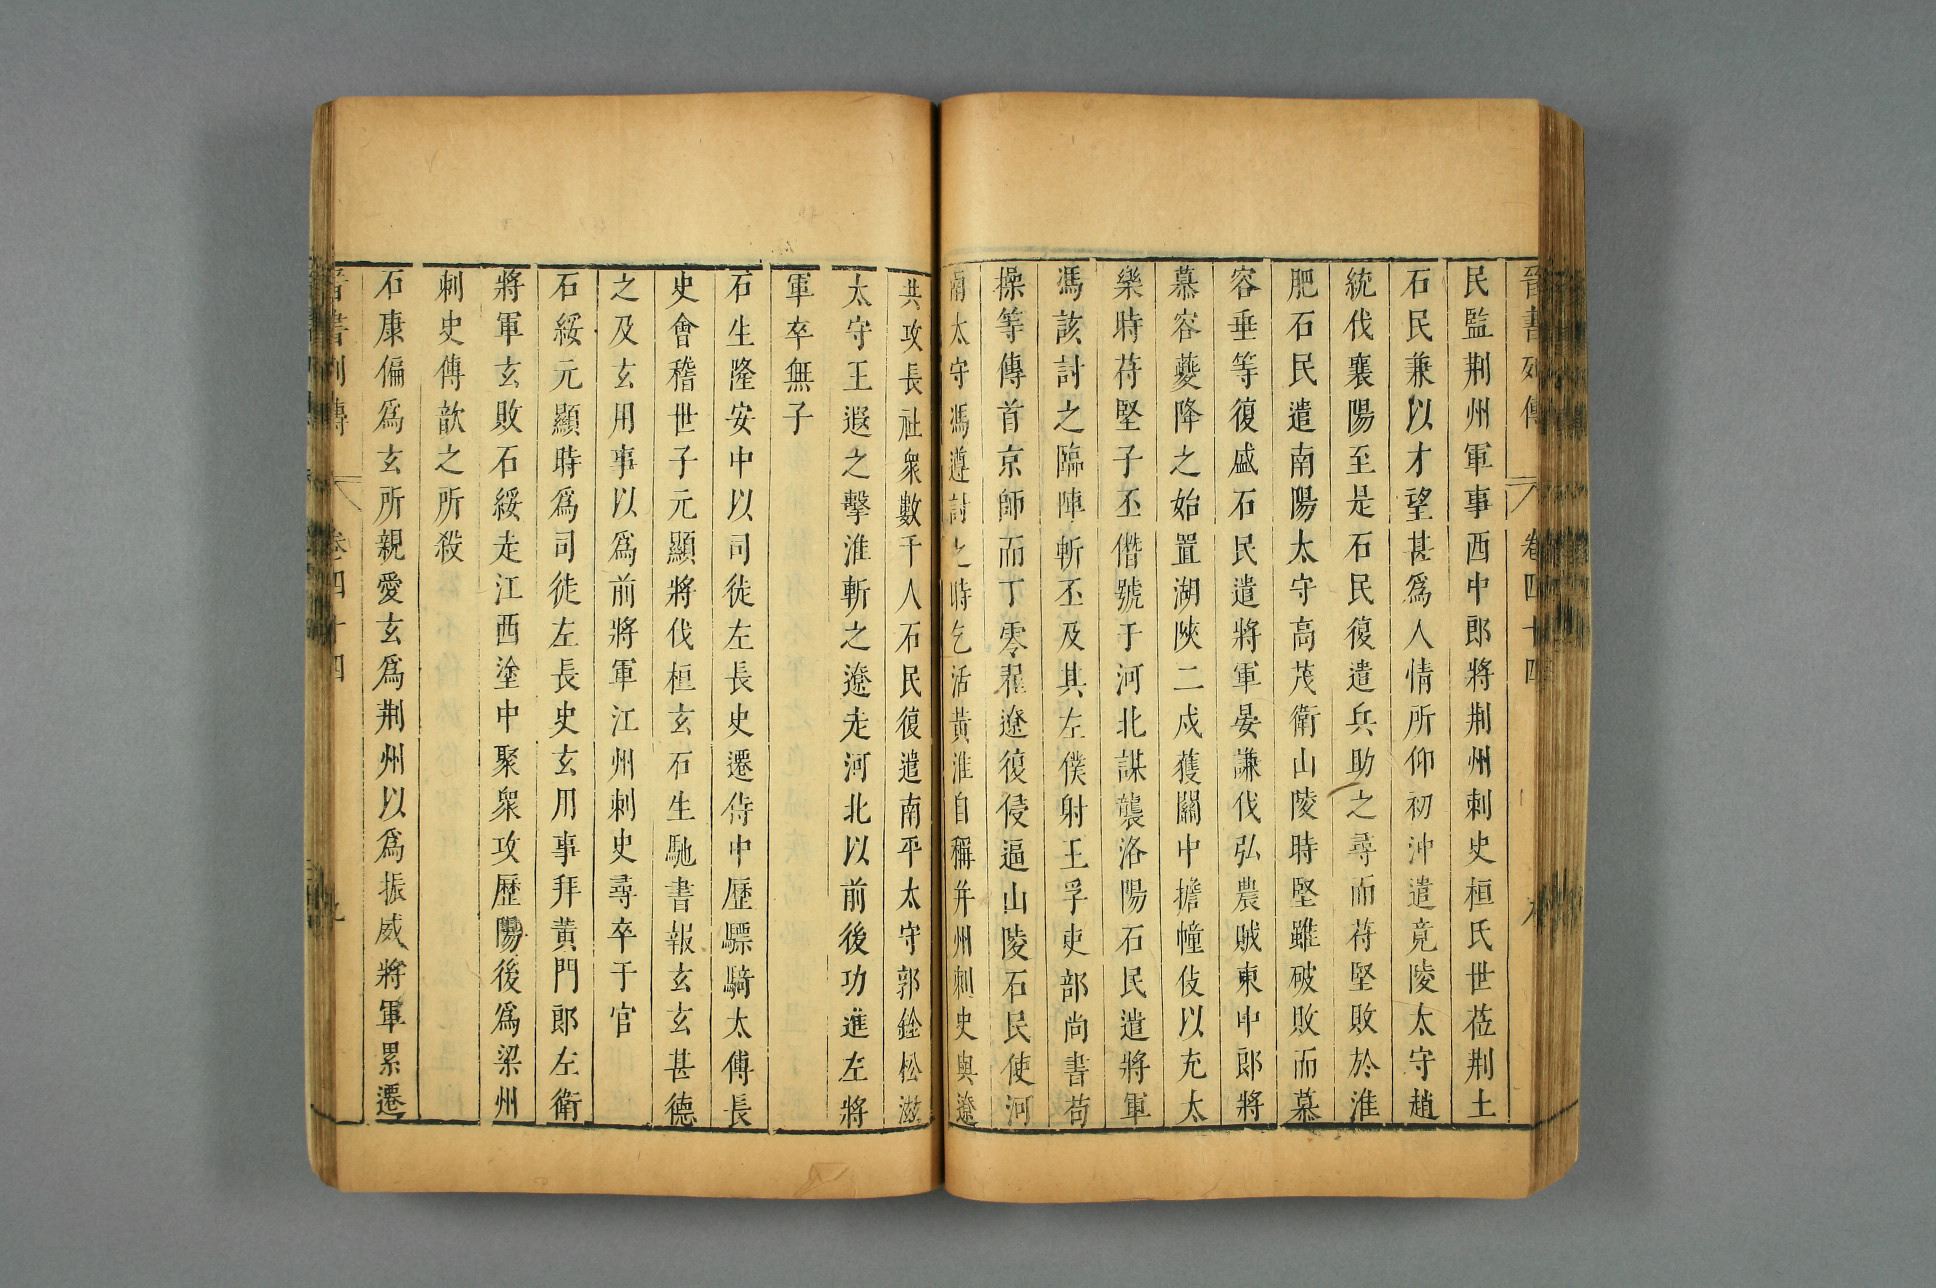 晉書列傳 卷四十四
民監荆州軍事西中郎將荆州刺史桓氏世莅荆土
石民兼以才望甚爲人情所仰初沖遣竟陵太守趙
統伐襄陽至是石民復遣兵助之尋而苻堅敗於淮
肥石民遣南陽太守高茂衛山陵時堅雖破敗而慕
容垂等復盛石民遣將軍晏謙伐弘農賊東中郎將
慕容夔降之始置湖陝二戍獲關中擔幢伎以充太
樂時苻堅子丕僭號于河北謀襲洛陽石民遣將軍
馮該討之臨陣斬丕及其左僕射王孚吏部尚書苟
操等傳首京師而丁零翟遼復侵逼山陵石民使河
南太守馮遵討之時乞活黄淮自稱并州刺史與遼
共攻長社衆數千人石民復遣南平太守郭銓松滋
太守王遐之擊淮斬之遼走河北以前後功進左將
軍卒無子
石生隆安中以司徒左長史遷侍中歷驃騎太傅長
史會稽世子元顯將伐桓玄石生馳書報玄玄甚德
之及玄用事以爲前將軍江州刺史尋卒于官
石綏元顯時爲司徒左長史玄用事拜黄門郎左衛
將軍玄敗石綏走江西塗中聚衆攻歷陽後爲梁州
刺史傅歆之所殺
石康偏爲玄所親愛玄爲荆州以爲振威將軍累遷
晉書列傳 卷四十四 九